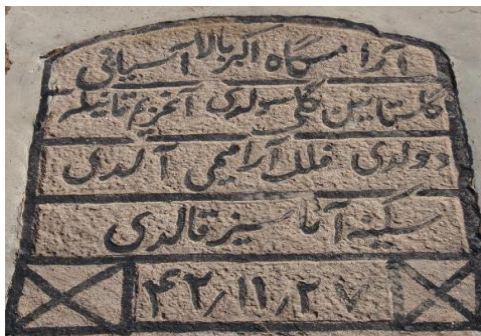 آرامگاه اکبر بالا
گلستانین گلی سولدی قانیله
دولدی فلک آرامیمی آلدی
سکینه آناسیز قالدی
۴۲/۱۱/۲۷